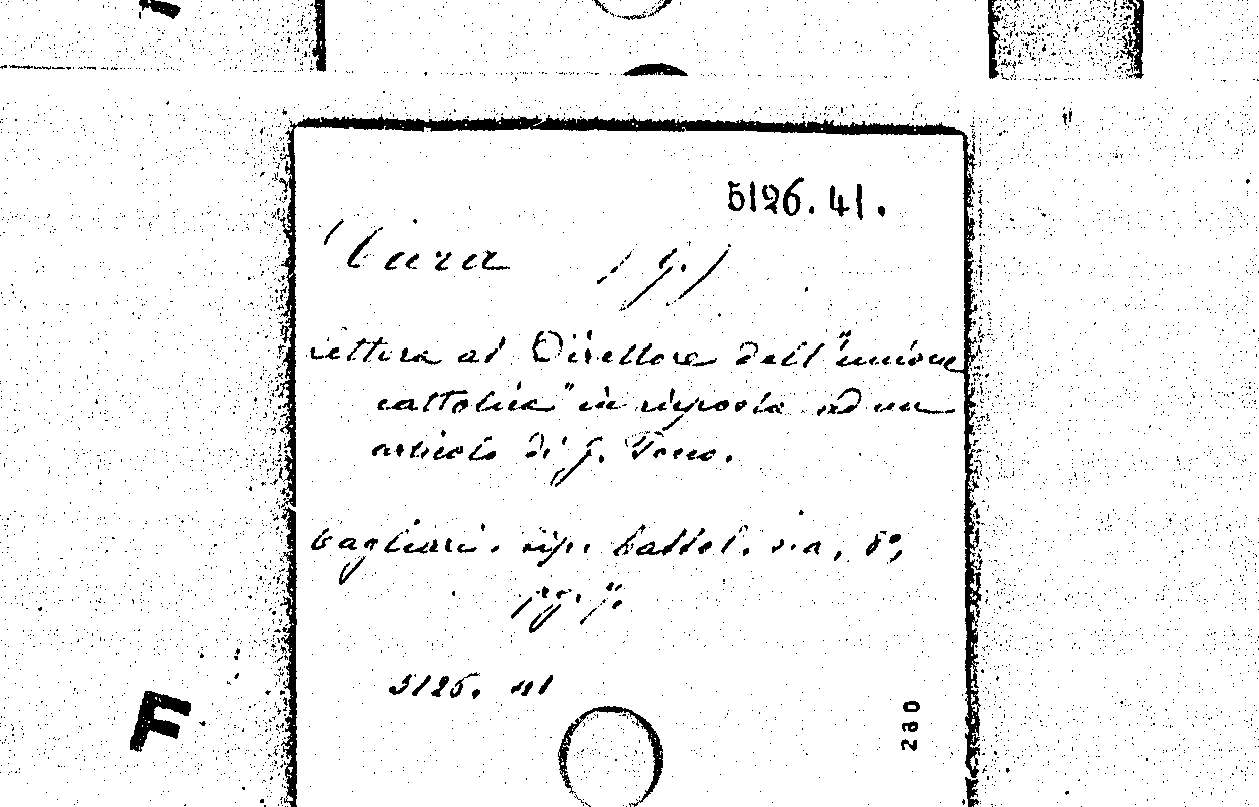 5126.41.
(G.)
Lettera al Direttore dell'"unione
cattolica" in risposta ad un
articolo di G. Tono.
Cagliari. tip. Cattol. s.a., 8°,
pg. 7.
5126. 41
280
F